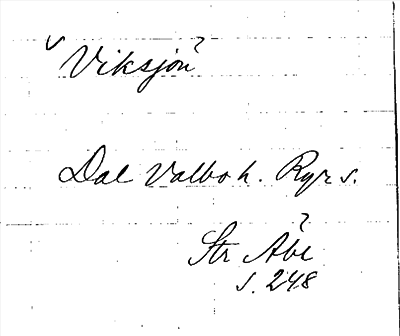 "Viksjön"
Dal Valbo h. Ryr s.
Str Åbl
s. 248